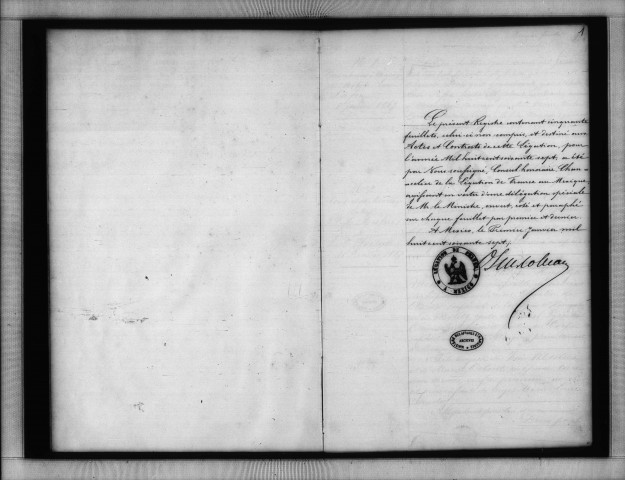 1
Le présent Registre contenant cinquante
feuillets, celui-ci non compris, et destiné aux
Actes et Contrats de cette Légation, pour
l'année Mil huit cent soixante sept, a été
par Nous soussigné, Consul honoraire, Chan-
celier de la Légation de France au Mexique
agissant en vertu d'une délégation spéciale
de Mr le Ministre, ouvert, coté et paraphé
sur chaque feuillet par premier et dernier
A Mexico, le Premier janvier mil
huit cent soixante sept.
LEGATION DE FRANCE